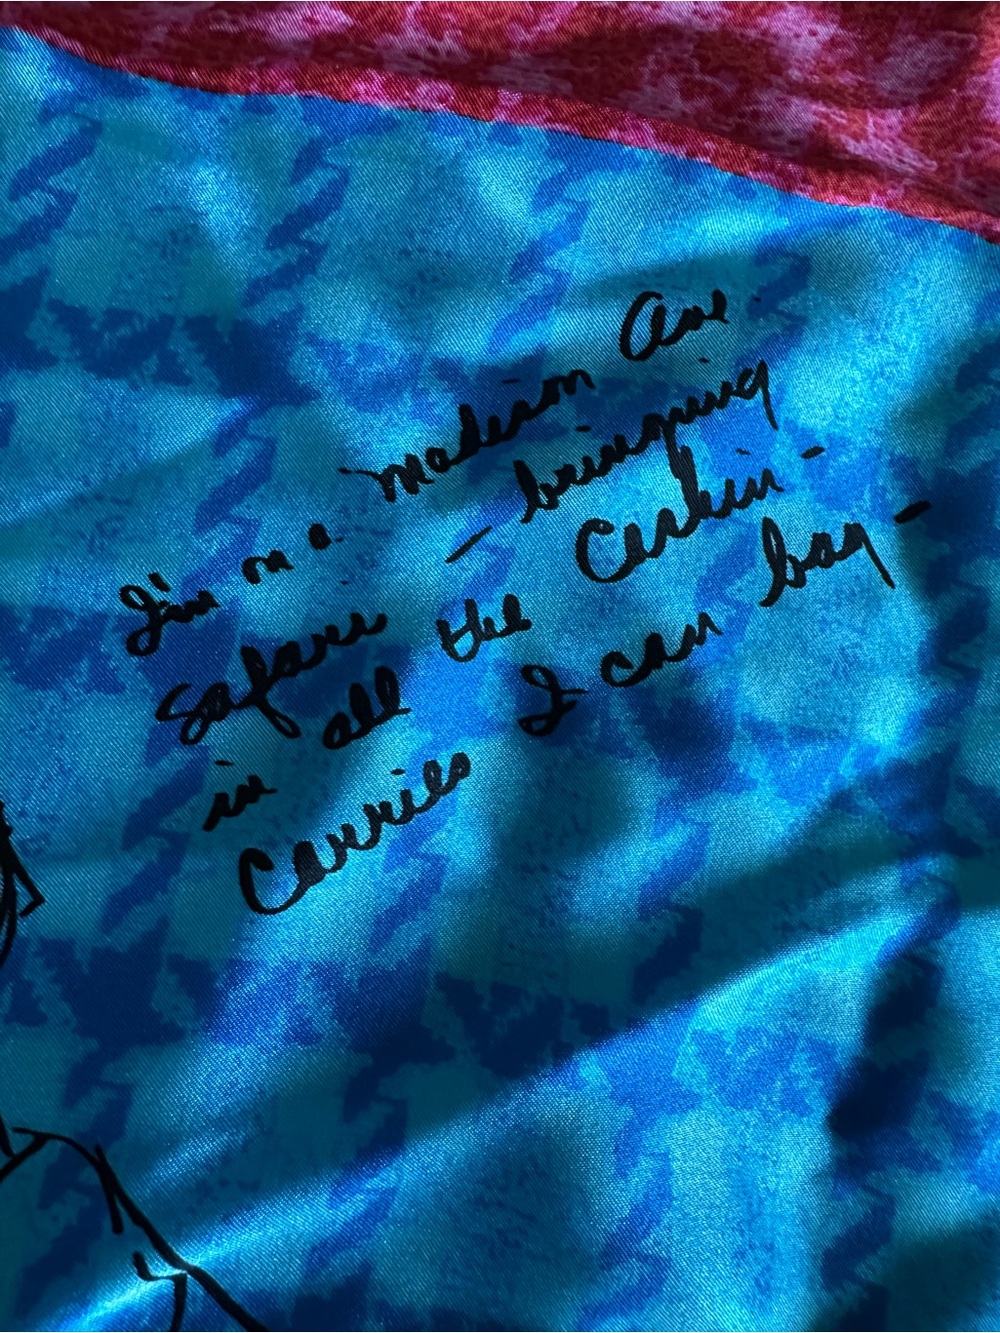 I'm on a Madison Ave.
Safari — bringing
in all the Cashin -
Carries I can bag -